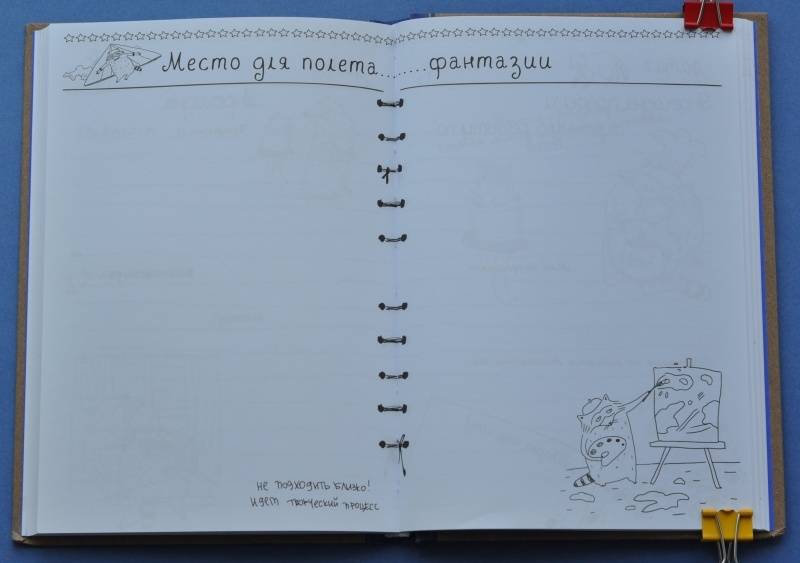 Место для полета........фантазии
не подходить близко!
идет творческий процесс